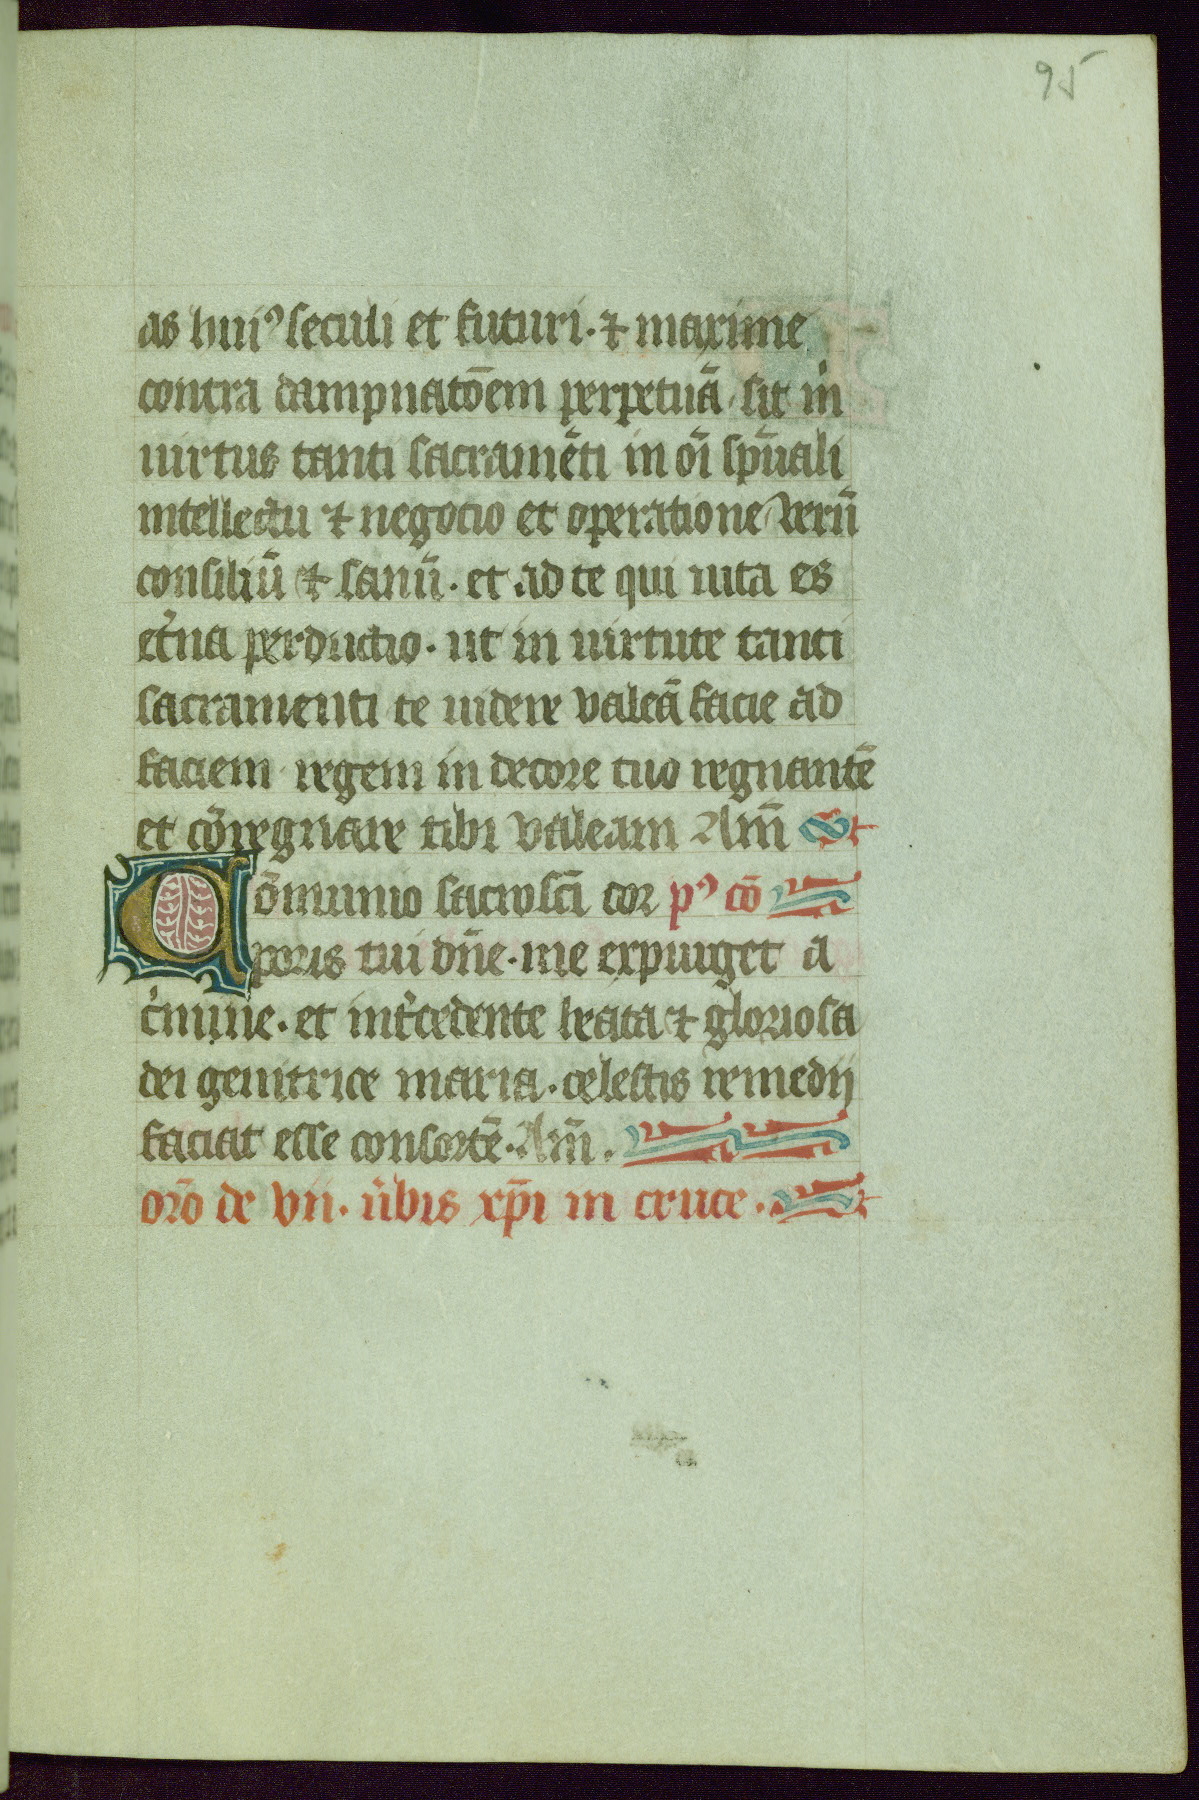 95
as huiꝰ seculi et futuri · ⁊ maxime
contra dampnatōem perpetuā sit in̄
uirtus tanti sacramēti in oī spūali
intellectu ⁊ negotio et operatione Verū
consiliū ⁊ sanū · et ad te qui uita es
et̓na perductio · ut in uirtute tanti
sacramenti te uidere valeā facie ad
faciem regem in decore tuo regnantē
et cōregnare tibi valeam Am̄
Cōmunio sacrosc̄i cor pꝰ cō
poris tui dn̄e · me expurget a
c̓mine · et int̓cedente beata ⁊ gloriosa
dei genitrice maria · celestis remedij
faciat esse consortē · Am̄ .
orō de vii · u̓bis xp̄i in cruce .